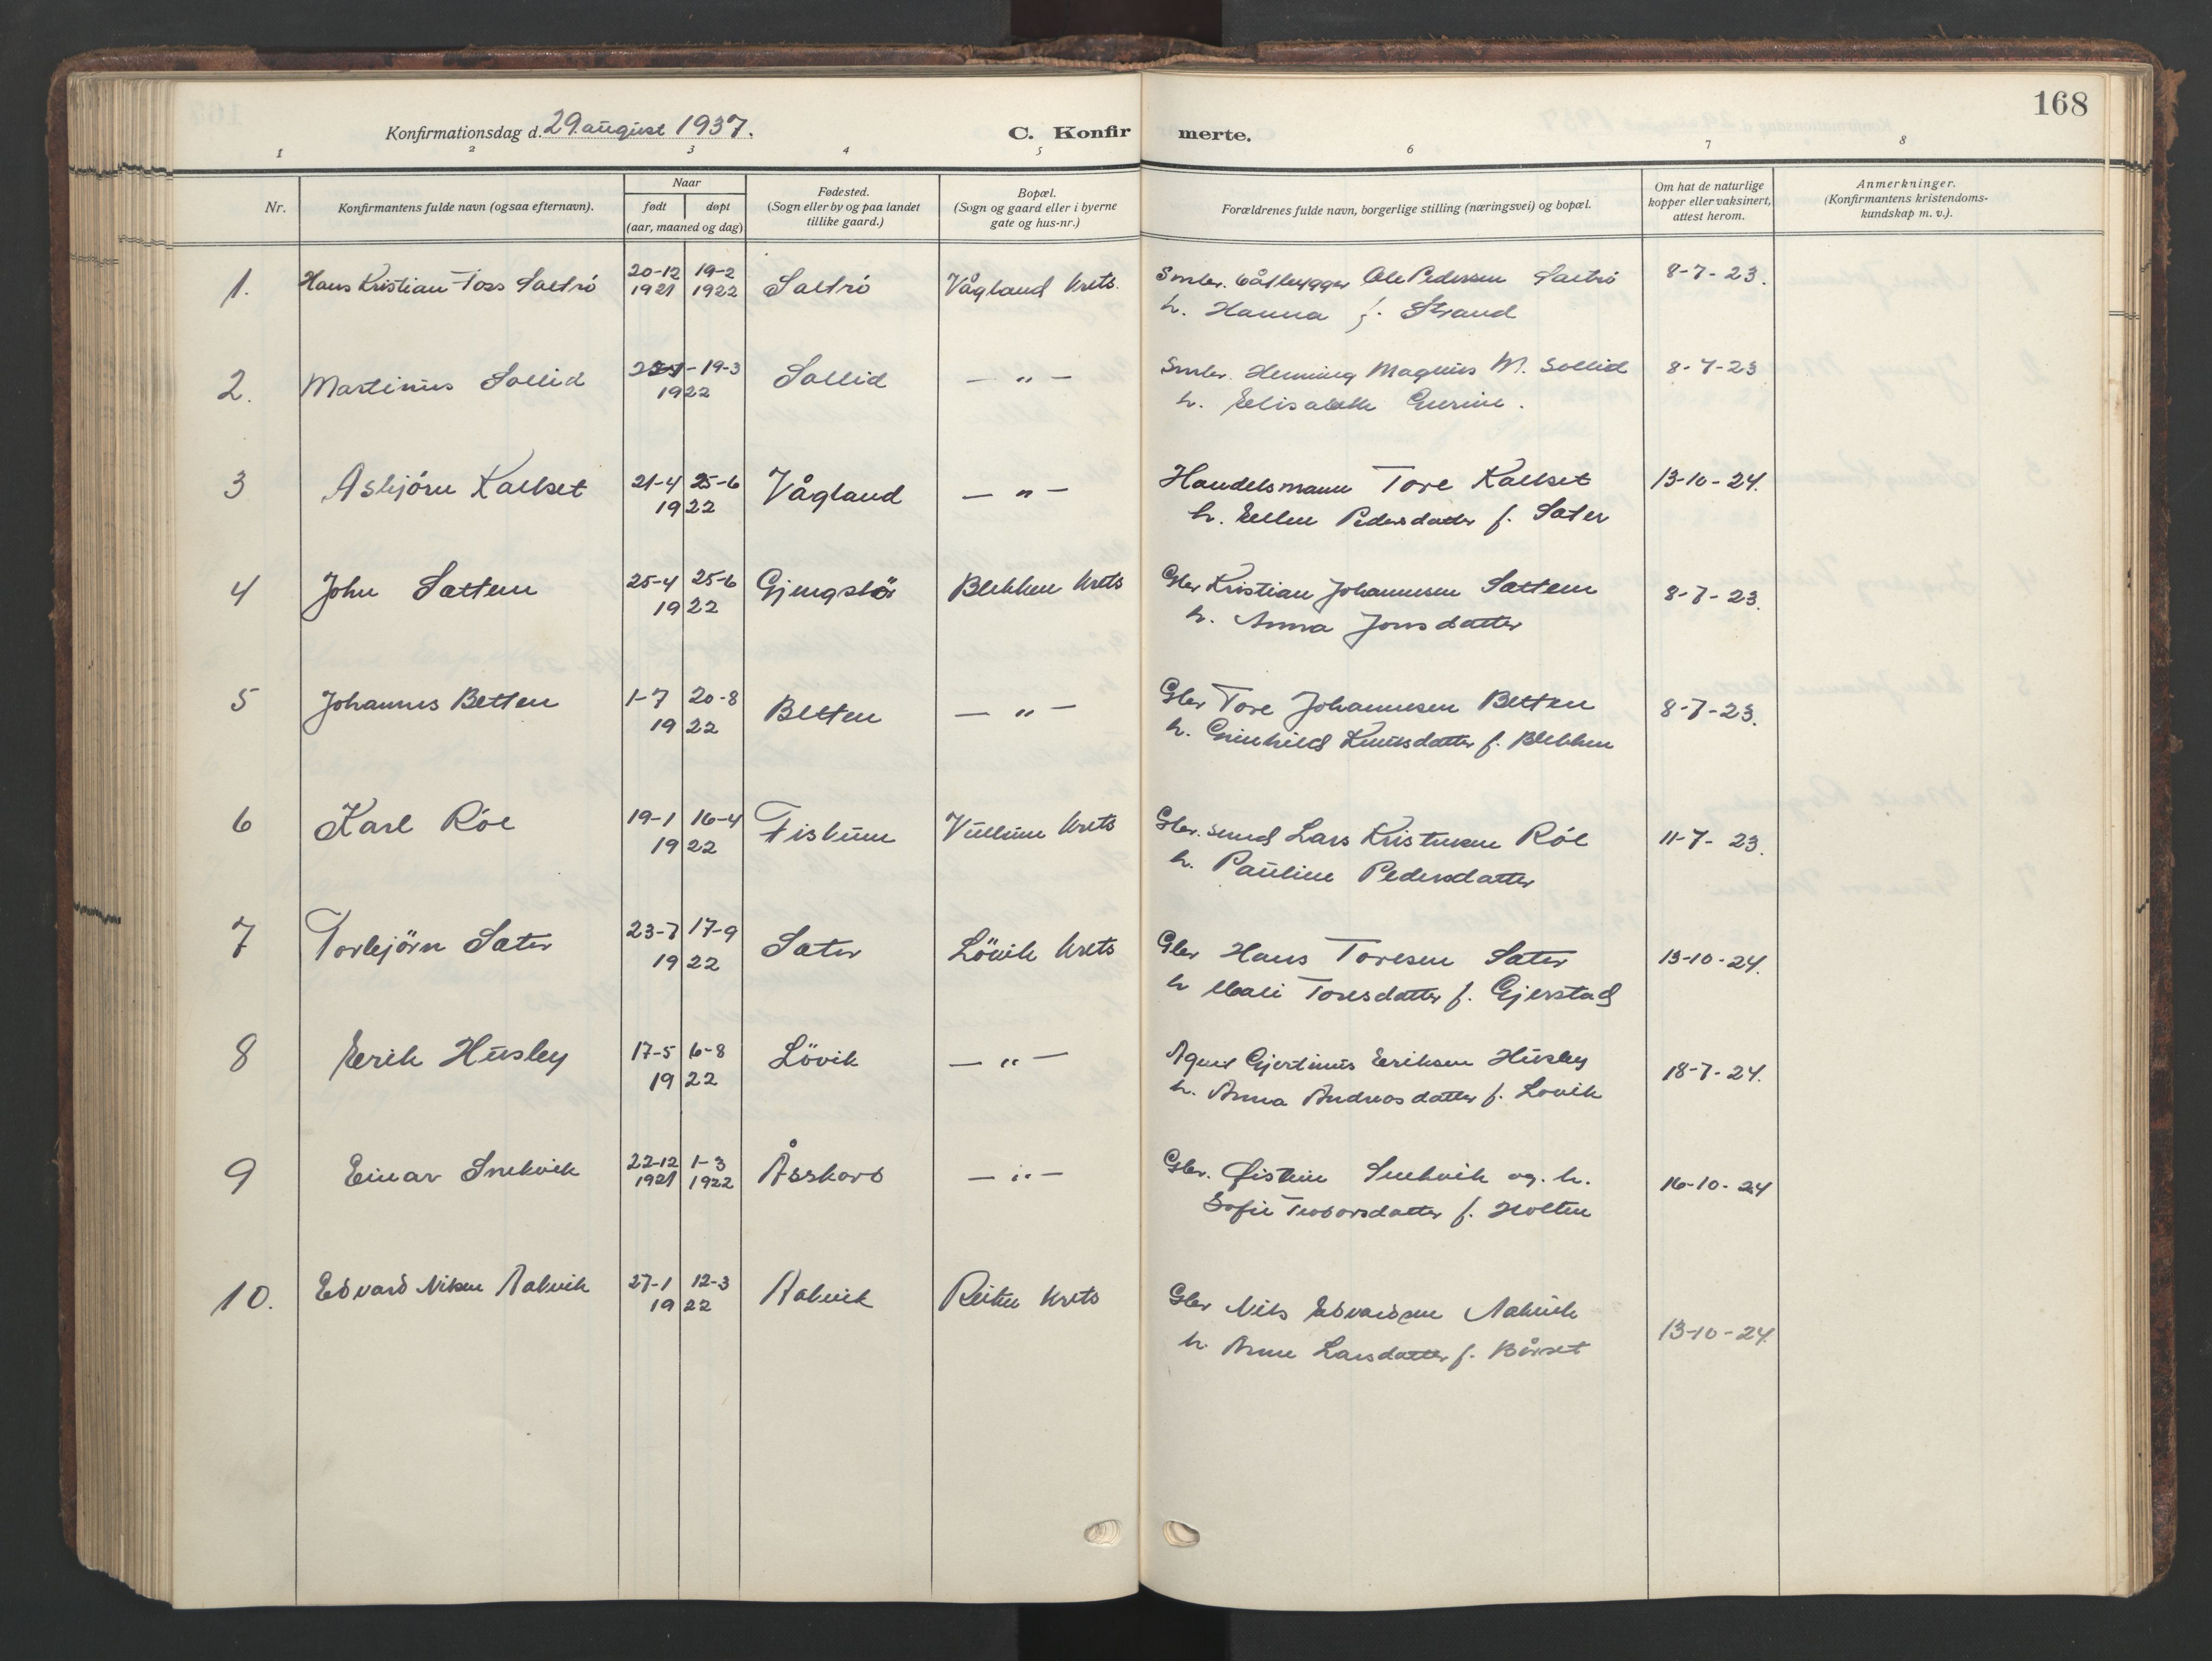 168
Konfirmationsdag d. 29 august 1937.
C. Konfir
merte.
1 2 3 4 5 6 7 8
Nr.
Konfirmantens fulde navn (ogsaa efternavn).
Naar
født døpt
(aar, maaned og dag)
Fødested.
(Sogn eller by og paa landet
tillike gaard.)
Bopæl.
(Sogn og gaard eller i byerne
gate og hus-nr.)
Forældrenes fulde navn, borgerlige stilling (næringsvei) og bopæl.
Om hat de naturlige
kopper eller vaksinert,
attest herom.
Anmerkninger.
(Konfirmantens kristendoms-
kundskap m. v.).
1. Hans Kristian Toss Saltrö 20-12 19-2 Saltrö Vågland krets. Smbr. båtbygger Ole Pedersen Saltrö 8-7-23.
1921 1922 h. Hanna f. Strand
2. Martinus Sollid 19-3 Sollid — " — Smbr. Henning Magnus M. Sollid 8-7-23
1922 h. Elisabeth Gurine.
3 Asbjörn Kalset 21-4 25-6 Vågland — " — Handelsmann Tore Kalset 13-10-24.
1922 h. Ellen Pedersdatter f. Sater
4 John Sættem 25-4 25-6 Gjengstö Blekken krets Gbr Kristian Johannesen Sættem 8-7-23.
1922 h. Anna Jonsdatter
5 Johannes Betten 1-7 20-8 Betten — " — Gbr Tore Johannesen Betten 8-7-23.
1922 h. Gunhild Knutsdatter f. Blekken
6 Karl Röe 19-1 16-4 Fiskum Vullum krets Gbr. smed Lars Kristensen Röe 11-7-23.
1922 h. Pauline Pedersdatter
7 Torbjörn Sater 23-7 17-9 Sater Lövik krets Gbr Hans Toresen Sater 13-10-24.
1922 h Mali Toresdatter f. Gjerstad
8 Erik Husby 17-5 6-8 Lövik — " — Gjertinus Eriksen Husby 18-7-24.
1922 h. Anna Andreasdatter f. Lovik
9 Einar Snekvik 22-12 1-3 Åsskard — " — Gbr. Øistein Snekvik og h. 16-10-24
1921 1922 Sofie Teodorsdatter f. Holten
10. Edvard Nilsen Aalvik 27-1 12-3 Aalvik Reiten krets Gbr Nils Edvardsen Aalvik 13-10-24.
1922 h. Anne Larsdatter f. Bårset